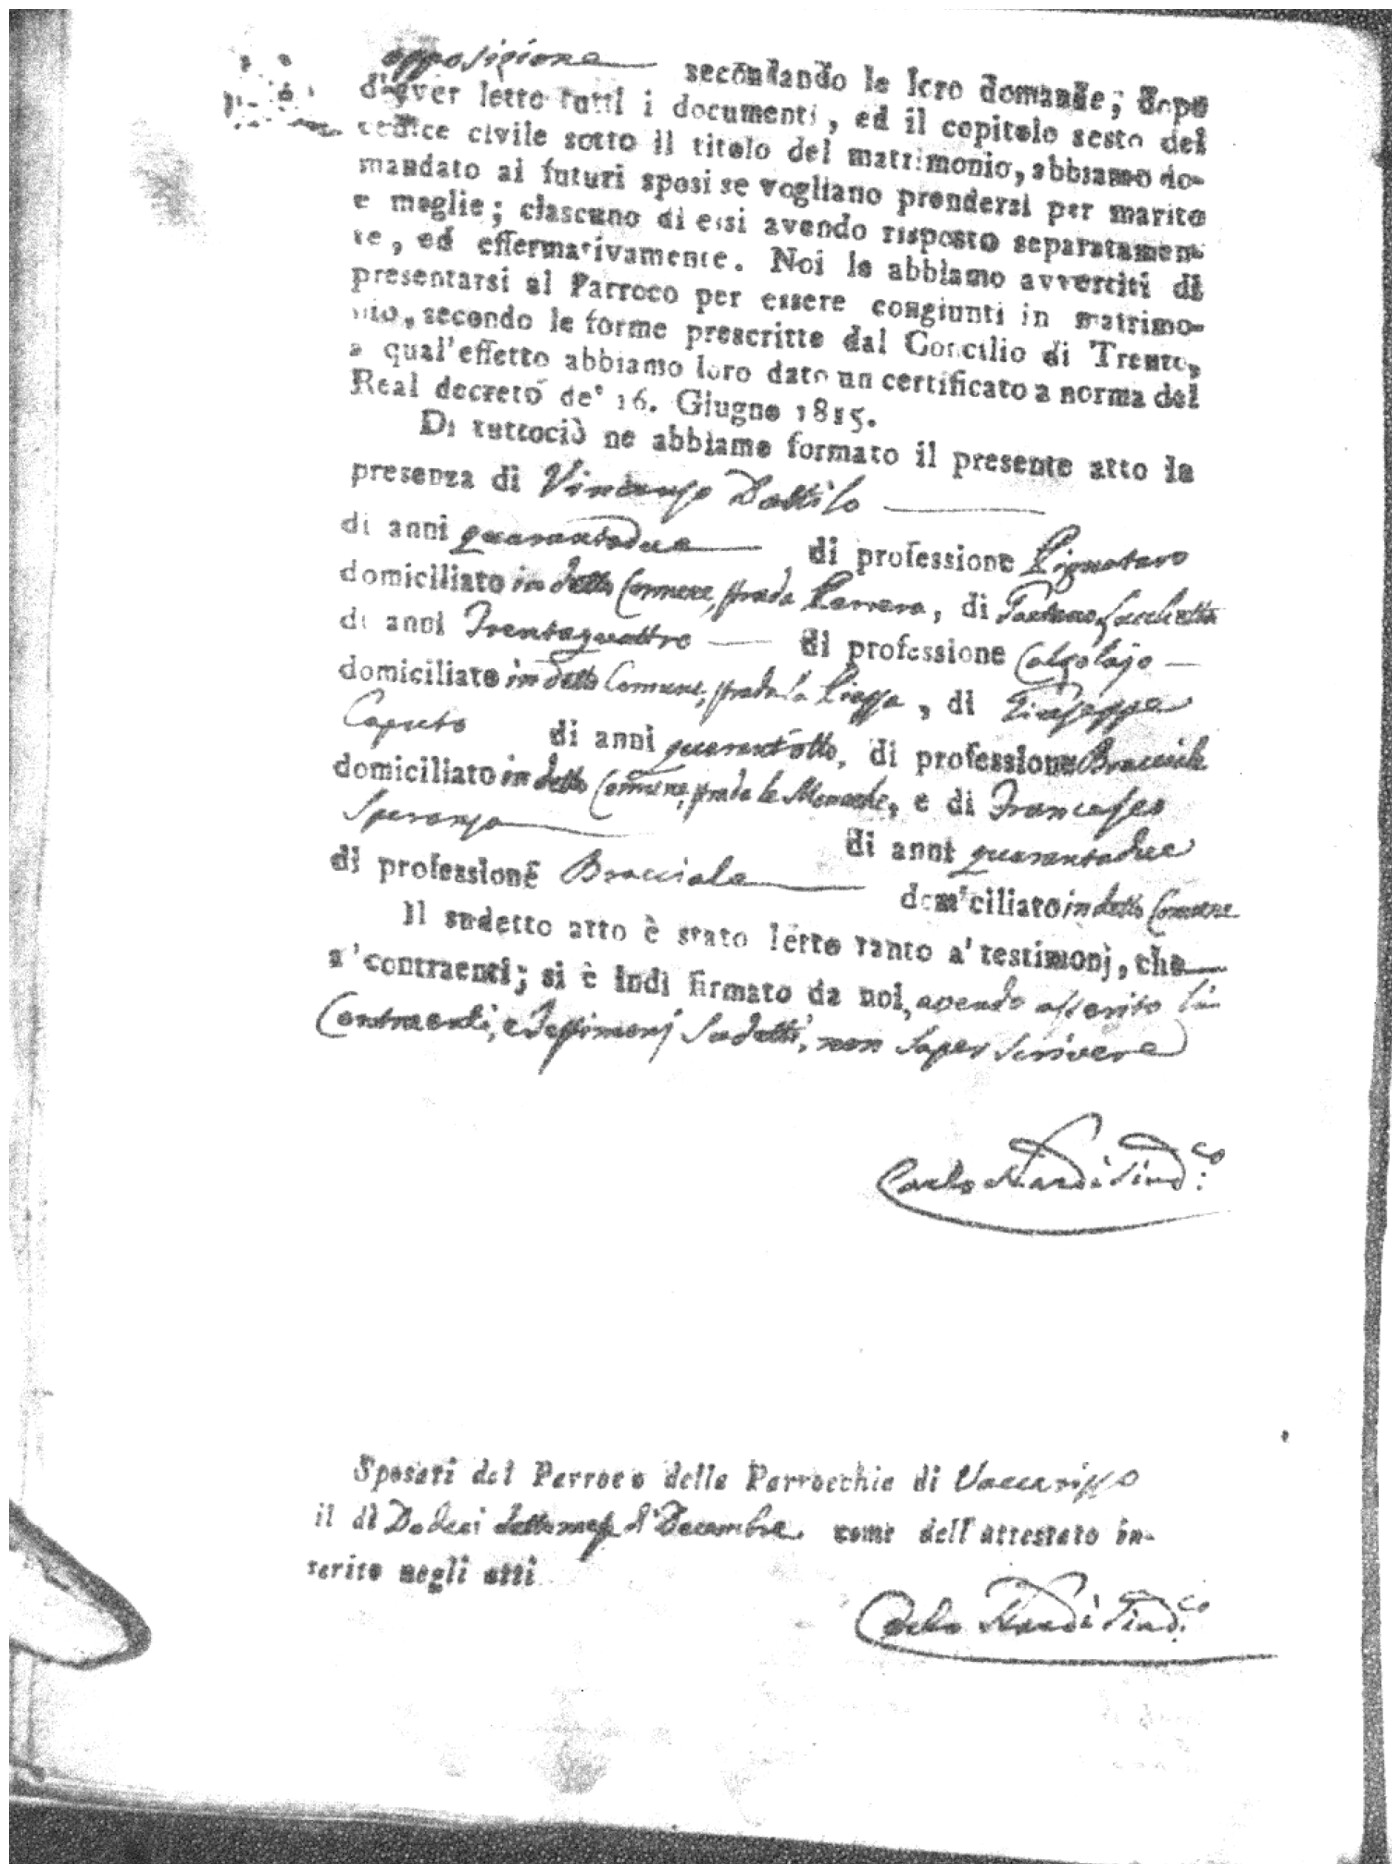 opposizione secondando le loro domande; dopo
d'aver letto tutti i documenti, ed il capitolo sesto del
codice civile sotto il titolo del matrimonio, abbiamo do-
mandato ai futuri sposi se vogliano prendersi per marito
e moglie; ciascuno di essi avendo risposto separatamen-
te, ed effermativamente. Noi le abbiamo avvertiti di
presentarsi al Parroco per essere congiunti in matrimo-
nio, secondo le forme prescritte dal Concilio di Trento,
a qual'effetto abbiamo loro dato un certificato a norma del
Real decreto de' 16. Giugno 1815.
Di tuttociò ne abbiamo formato il presente atto in
presenza di Vincenzo Dattilo
di anni quarantadue, di professione Pignataro
domiciliato in detto Comune, strada Carrera, di Gaetano
di anni Trentaquattro di professione Calzolajo
domiciliato in detto Comune, strada la Piazza, di Giuseppe
Caputo di anni quarant'otto, di professione Bracciale
domiciliato in detto Comune, strada le Monache, e di Francesco
Speranza di anni quarantadue
di professione Bracciale domiciliato in detto Comune
Il sudetto atto è stato letto tanto a' testimonj, che
a' contraenti; si è indi firmato da noi, avendo asserito li
Contraenti, e Testimonj sudetti, non saper scrivere
Carlo Nardi Sind.co
Sposati dal Parroco della Parrocchia di Vaccarizzo
il dì Dodeci detto mese d' Decembre come dell'attestato in-
serito negli atti
Carlo Nardi Sind.co